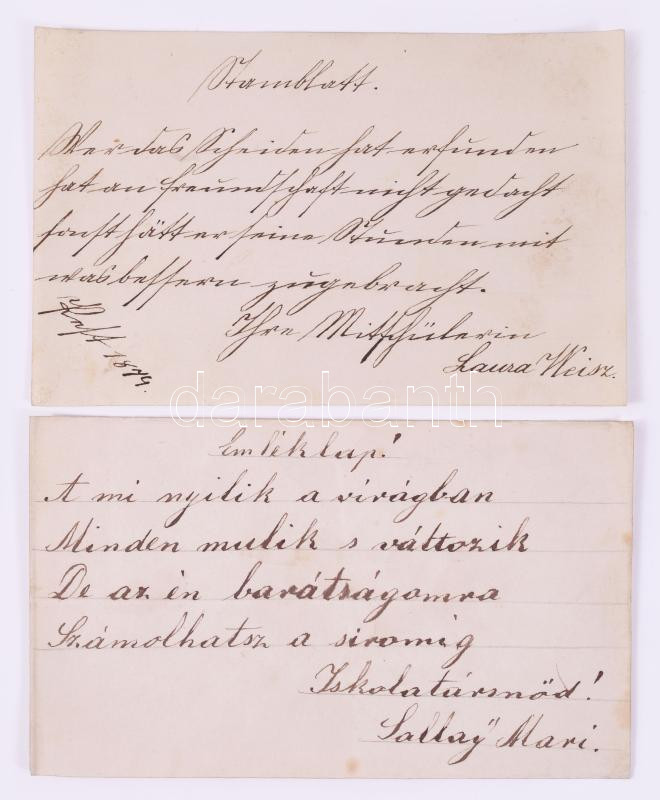 Stamblatt.
Wer das Scheiden hat erfunden
hat an Freundschaft nicht gedacht
sonst hätt er seine Stunden mit
was bessern zugebracht.
Ihre Mitschülerin
Laura Weisz.
Pest 1879.
darabanth
Emléklap!
A mi nyilik a virágban
Minden mulik s változik
De az én barátságomra
Számolhatsz a siromig
Iskolatársnőd!
Sallaÿ Mari.